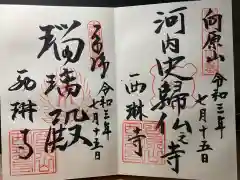 向原山
令和三年
七月十五日
河内史歸仏之寺
西琳寺
令和三年
七月十五日
瑠璃殿
西琳寺